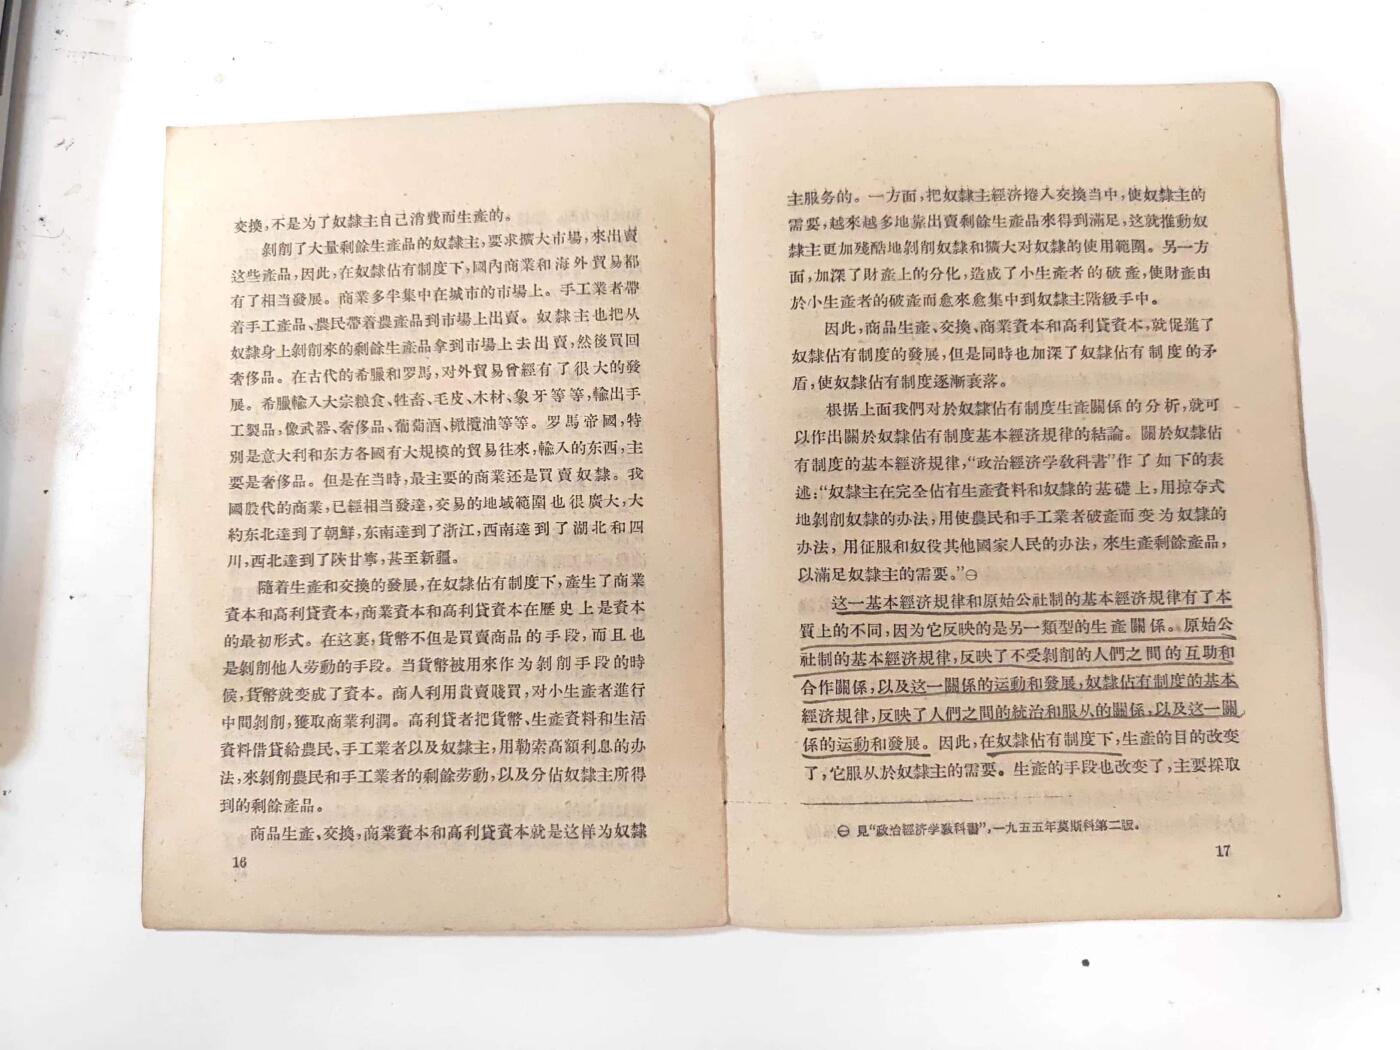 交換，不是为了奴隸主自己消費而生產的。
剝削了大量剩餘生產品的奴隸主，要求擴大市場，來出賣
这些產品，因此，在奴隸佔有制度下，國內商業和海外貿易都
有了相当發展。商業多半集中在城市的市場上。手工業者帶
着手工產品、農民帶着農產品到市場上出賣。奴隸主也把从
奴隸身上剝削來的剩餘生產品拿到市場上去出賣，然後買回
奢侈品。在古代的希臘和罗馬，对外貿易曾經有了很大的發
展。希臘輸入大宗粮食、牲畜、毛皮、木材、象牙等等，輸出手
工製品，像武器、奢侈品、葡萄酒、橄欖油等等。罗馬帝國，特
別是意大利和东方各國有大規模的貿易往來，輸入的东西，主
要是奢侈品。但是在当時，最主要的商業还是買賣奴隸。我
國殷代的商業，已經相当發達，交易的地域範圍也很廣大，大
約东北達到了朝鮮，东南達到了浙江，西南達到了湖北和四
川，西北達到了陝甘寧，甚至新疆。
隨着生產和交換的發展，在奴隸佔有制度下，產生了商業
資本和高利貸資本，商業資本和高利貸資本在歷史上是資本
的最初形式。在这裏，貨幣不但是買賣商品的手段，而且也
是剝削他人劳動的手段。当貨幣被用來作为剝削手段的時
候，貨幣就变成了資本。商人利用貴賣賤買，对小生產者進行
中間剝削，獲取商業利潤。高利貸者把貨幣、生產資料和生活
資料借貸給農民、手工業者以及奴隸主，用勒索高額利息的办
法，來剝削農民和手工業者的剩餘劳動，以及分佔奴隸主所得
到的剩餘產品。
商品生產、交換，商業資本和高利貸資本就是这样为奴隸
16
主服务的。一方面，把奴隸主經济捲入交換当中，使奴隸主的
需要，越來越多地靠出賣剩餘生產品來得到滿足，这就推動奴
隸主更加殘酷地剝削奴隸和擴大对奴隸的使用範圍。另一方
面，加深了財產上的分化，造成了小生產者的破產，使財產由
於小生產者的破產而愈來愈集中到奴隸主階級手中。
因此，商品生產、交換、商業資本和高利貸資本，就促進了
奴隸佔有制度的發展，但是同時也加深了奴隸佔有制度的矛
盾，使奴隸佔有制度逐漸衰落。
根据上面我們对於奴隸佔有制度生產關係的分析，就可
以作出關於奴隸佔有制度基本經济規律的結論。關於奴隸佔
有制度的基本經济規律，“政治經济学教科書”作了如下的表
述：“奴隸主在完全佔有生產資料和奴隸的基礎上，用掠夺式
地剝削奴隸的办法，用使農民和手工業者破產而变为奴隸的
办法，用征服和奴役其他國家人民的办法，來生產剩餘產品，
以滿足奴隸主的需要。”㊀
这一基本經济規律和原始公社制的基本經济規律有了本
質上的不同，因为它反映的是另一類型的生產關係。原始公
社制的基本經济規律，反映了不受剝削的人們之間的互助和
合作關係，以及这一關係的运動和發展，奴隸佔有制度的基本
經济規律，反映了人們之間的統治和服从的關係，以及这一關
係的运動和發展。因此，在奴隸佔有制度下，生產的目的改变
了，它服从於奴隸主的需要。生產的手段也改变了，主要採取
㊀ 見“政治經济学教科書”，一九五五年莫斯科第二版。
17